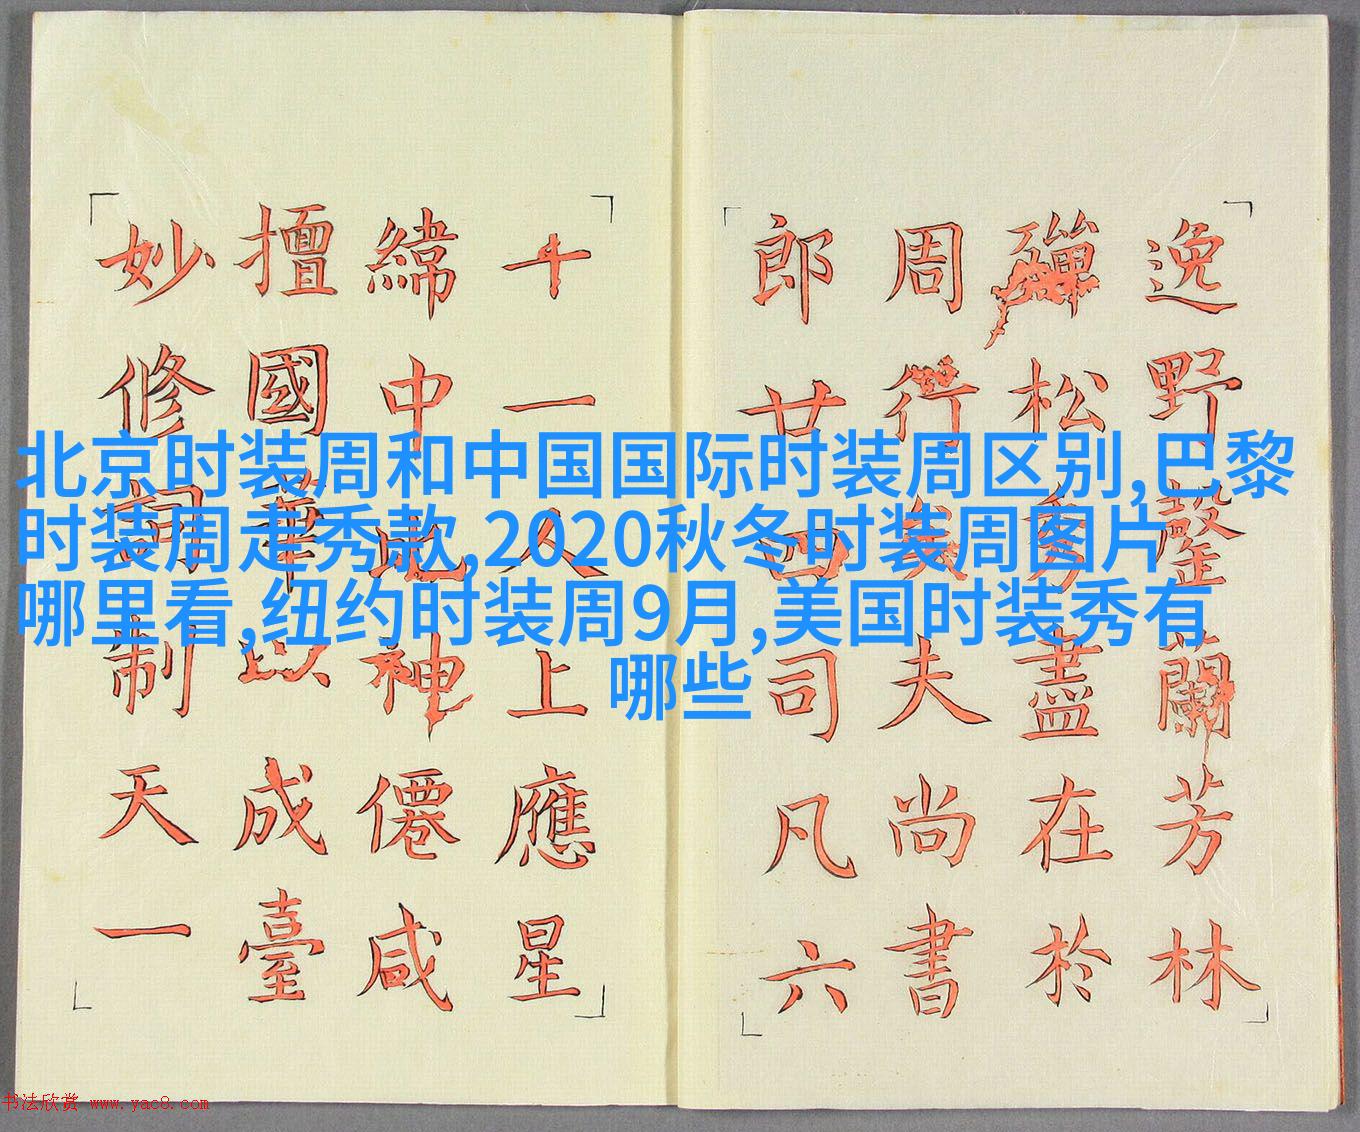 北京时装周和中国国际时装周区别,巴黎
时装周走秀款,2020秋冬时装周图片
哪里看,纽约时装周9月,美国时装秀有
哪些
逸野罄蘭芳林
殫松秀盡在於
周行矣夫尚書
郎廿四司凡六
十一人上應星
緯中比神僊咸
擅國華以成臺
妙修詞制天一
书法欣赏 www.yac8.com